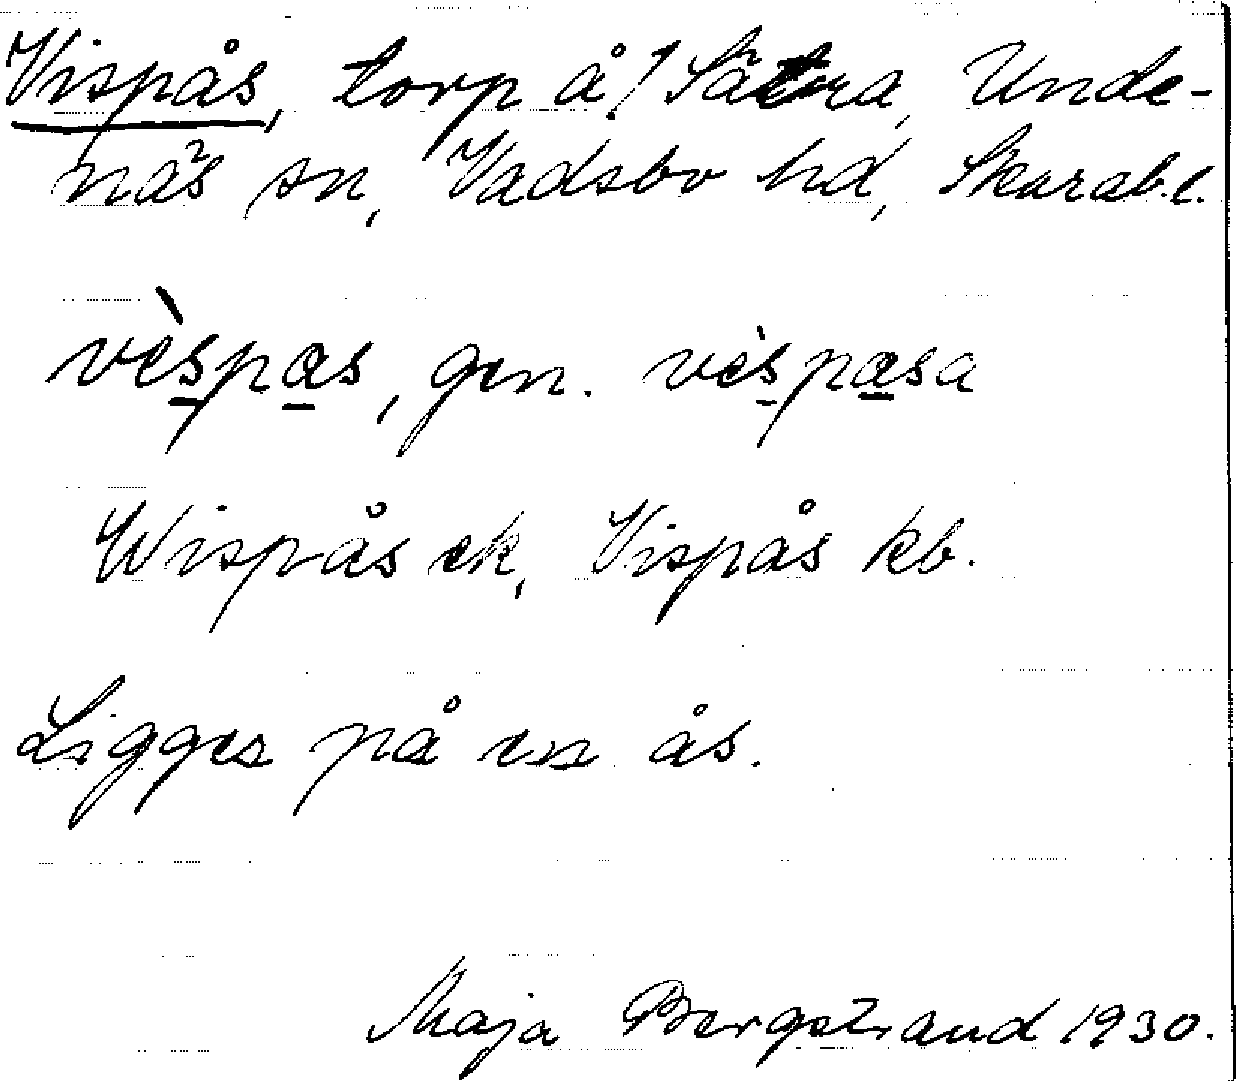 Vispås, torp å! Sätra, Unde-
näs sn, Vadsbo hd, Skarab. l.
vèspas, gen. vèspasa
Wispås ek, Vispås kb.
Ligger på en ås.
Maja Bergstrand 1930.